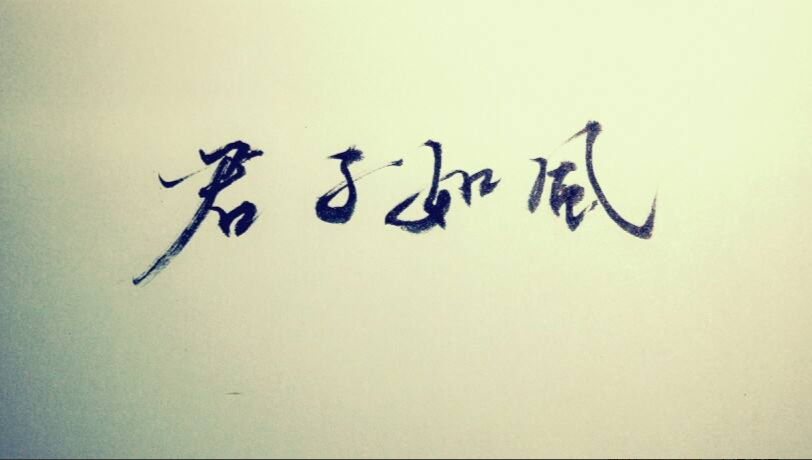 君子如風